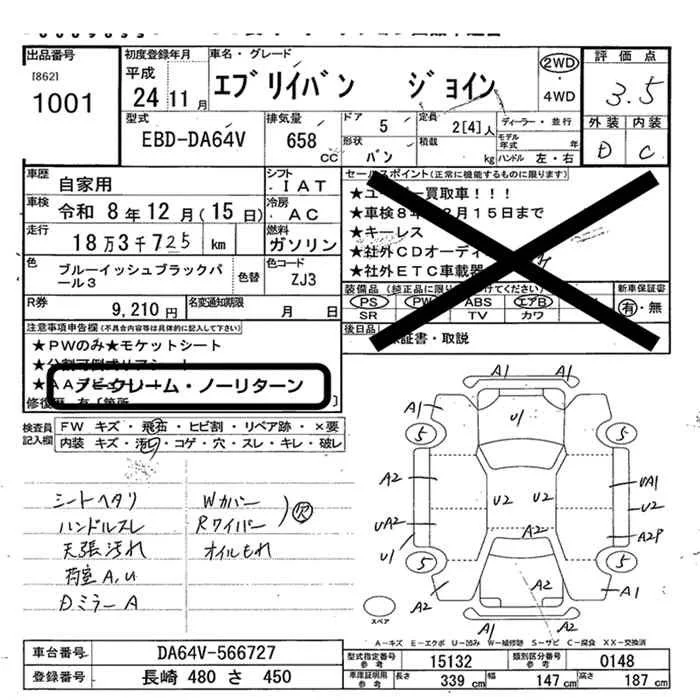 出品番号
[862]
1001
初度登録年月
平成
24 11月
車名・グレード
エブリイバン ジョイン
2WD
・
4WD
評価点
3.5
外装 内装
D C
型式
EBD-DA64V
排気量
658 cc
ドア
5
定員
2[4]人
ディーラー・並行
形状
バン
積載
kg
モデル年式 年
ハンドル 左・右
車歴
自家用
シフト
IAT
車検
令和 8年12月(15日)
冷房
AC
走行
18万3千725 km
燃料
ガソリン
色
ブルーイッシュブラックパール3
色替
色コード
ZJ3
R券
9,210円
名変通知期限
月 日
セールスポイント(正常に機能するものに限ります)
買取車!!!
★車検8年 月15日まで
★キーレス
★社外CDオーディ
★社外ETC車載器
装備品
PS PW ABS エアB
SR TV カワ
新車保証書
有・無
後日品
保証書・取説
注意事項申告欄(不具合内容等は具体的に記入して下さい)
★PWのみ★モケットシート
★分割可倒式リアシート
ノークレーム・ノーリターン
修復歴 有 [箇所 ]
検査員記入欄
FW キズ・飛石・ヒビ割・リペア跡・×要
内装 キズ・汚れ・コゲ・穴・スレ・キレ・破レ
シートヘタリ
ハンドルスレ
天張汚れ
荷室A,U
Dミラー A
Wカバー
Rワイパー
欠
オイルもれ
A1 A1
A1 U1
5 5
A2 UA1
U2 U2 U2
UA2 A2 A2P
U1
5 5
A2 A2 A1
A1 A2
スペア
A−キズ E−エクボ U−凹み W−補修跡 S−サビ C−腐食 XX−交換済
車台番号
DA64V-566727
登録番号
長崎 480 さ 450
型式指定番号
参考
15132
類別区分番号
参考
0148
車庫証明用
参考
長さ 339 cm 幅 147 cm 高さ 187 cm